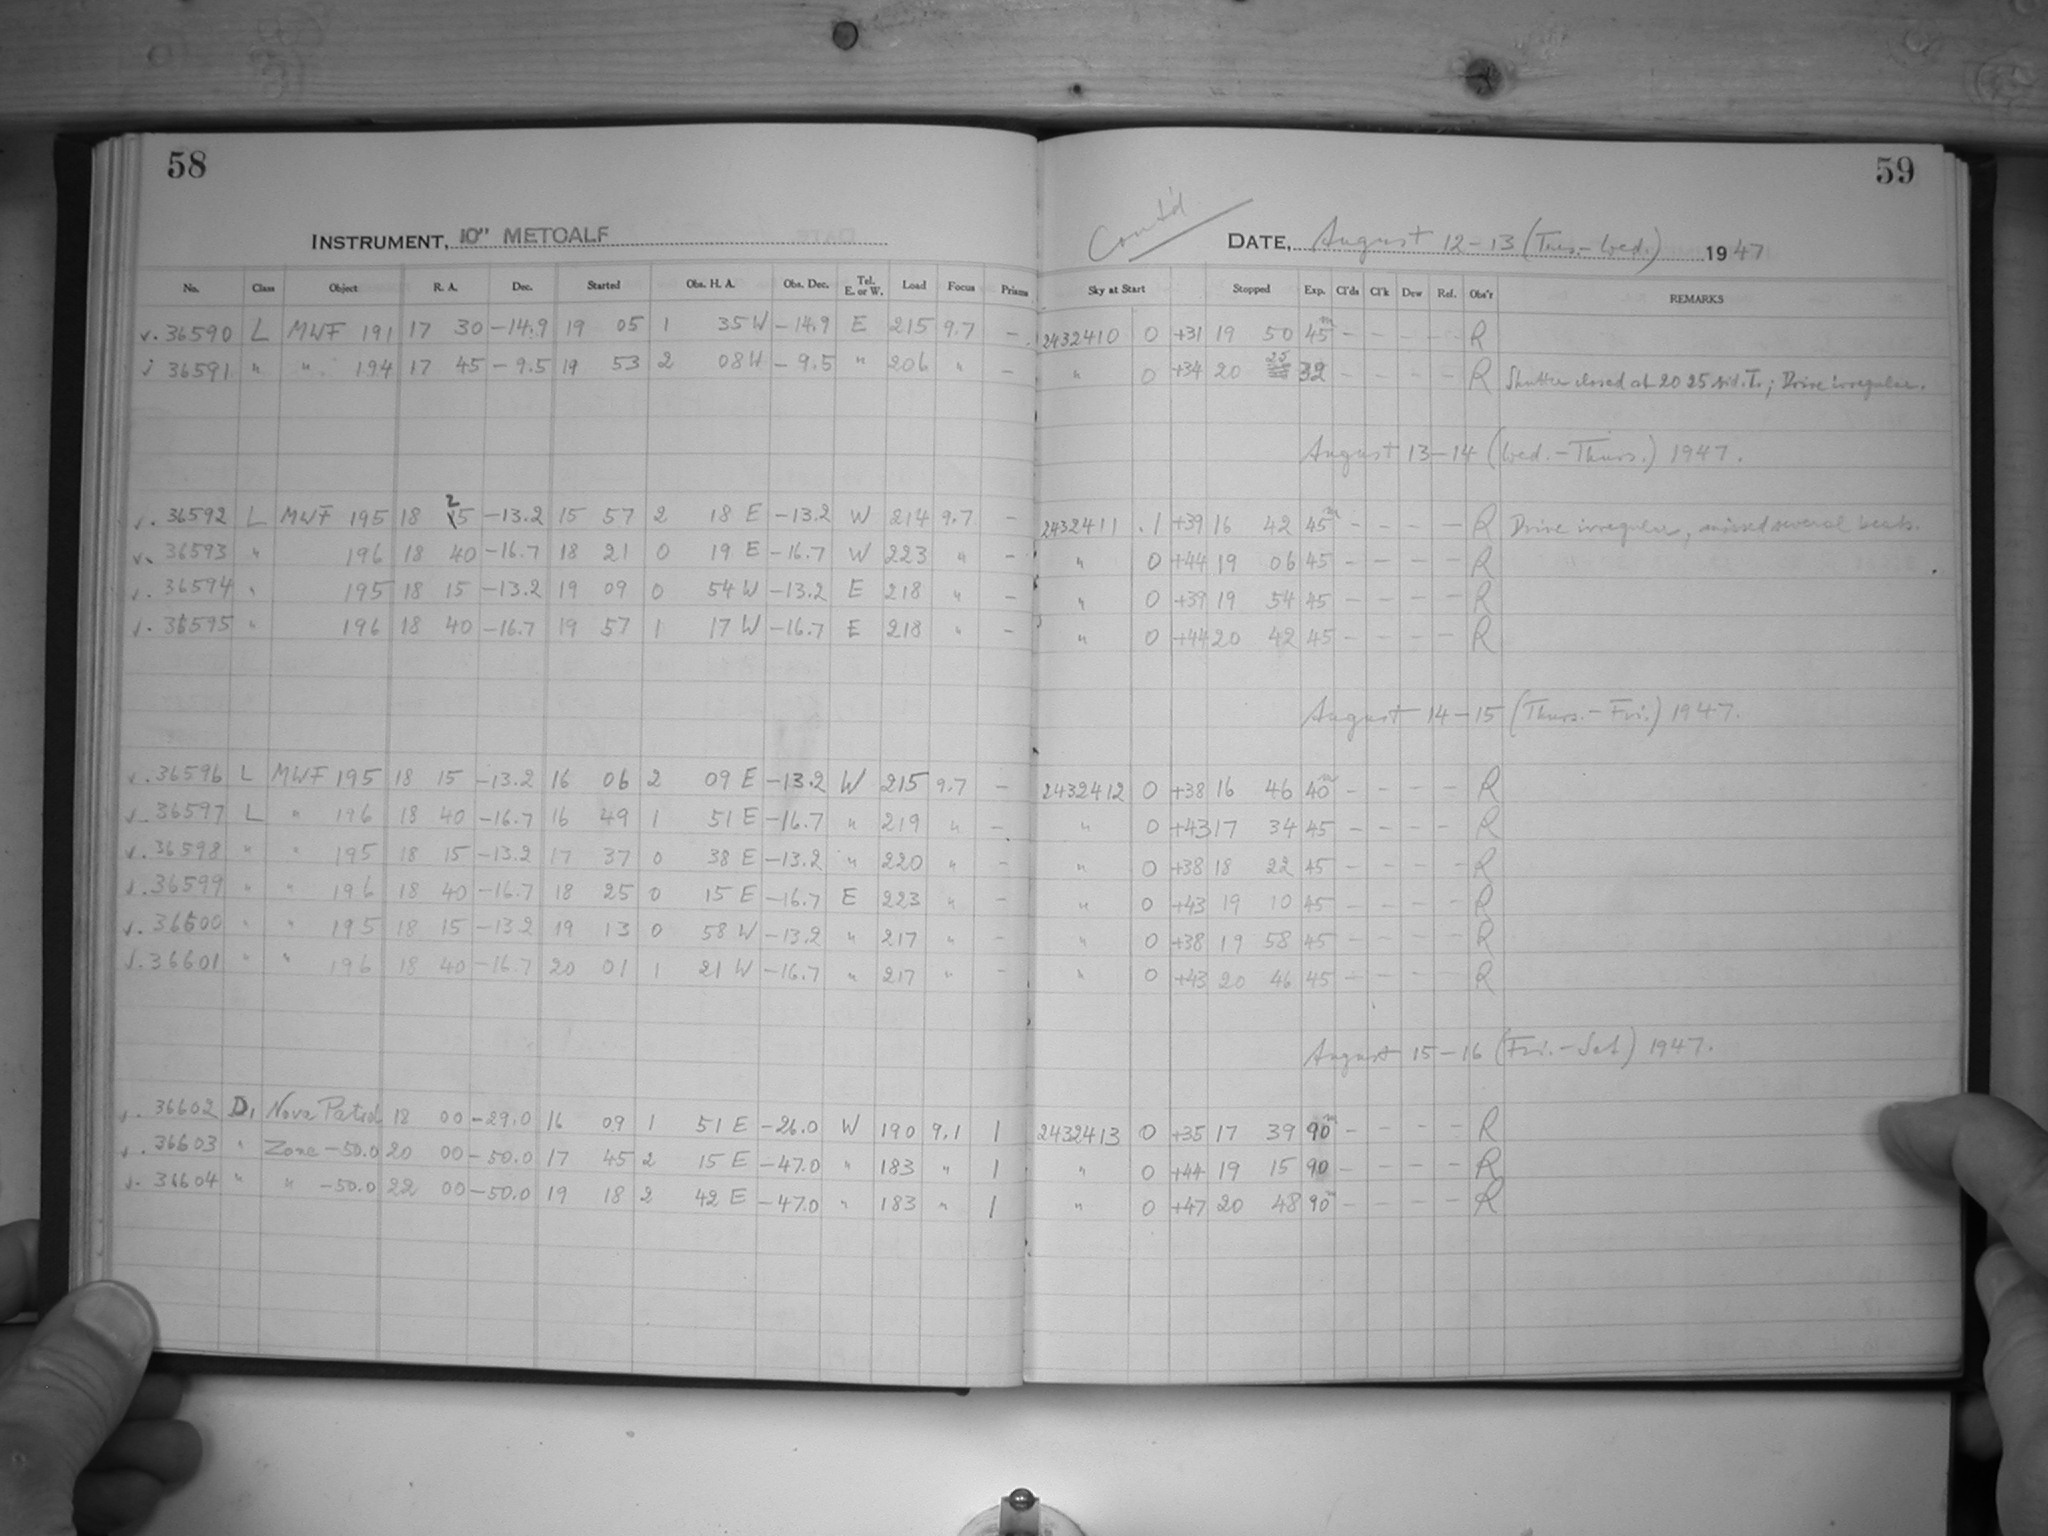 58
59
INSTRUMENT, 10" METCALF
Cont'd
DATE, August 12-13 (Tues.-Wed.) 1947
No. Class Object R. A. Dec. Started Obs. H. A. Obs. Dec. Tel. E. or W. Load Focus Prisms Sky at Start Stopped Exp. Cl'ds Cl'k Dew Ref. Obs'r REMARKS
v. 36590 L MWF 191 17 30 -14.9 19 05 1 35 W -14.9 E 215 9.7 - 2432410 0 +31 19 50 45m - - - - R
36591 " " 194 17 45 -9.5 19 53 2 08 W -9.5 " 206 " - " 0 +34 20 25 32 - - - - R Shutter closed at 20 25 sid. T.; Drive irregular.
August 13-14 (Wed.-Thurs.) 1947.
v. 36592 L MWF 195 18 25 -13.2 15 57 2 18 E -13.2 W 214 9.7 - 2432411 .1 +39 16 42 45m - - - - R Drive irregular, missed several beats.
v. 36593 " 196 18 40 -16.7 18 21 0 19 E -16.7 W 223 " - " 0 +44 19 06 45 - - - - R
v. 36594 " 195 18 15 -13.2 19 09 0 54 W -13.2 E 218 " - " 0 +39 19 54 45 - - - - R
v. 36595 " 196 18 40 -16.7 19 57 1 17 W -16.7 E 218 " - " 0 +44 20 42 45 - - - - R
August 14-15 (Thurs.-Fri.) 1947.
v. 36596 L MWF 195 18 15 -13.2 16 06 2 09 E -13.2 W 215 9.7 - 2432412 0 +38 16 46 40m - - - - R
v. 36597 L " 196 18 40 -16.7 16 49 1 51 E -16.7 " 219 " - " 0 +43 17 34 45 - - - - R
v. 36598 " " 195 18 15 -13.2 17 37 0 38 E -13.2 " 220 " - " 0 +38 18 22 45 - - - - R
v. 36599 " " 196 18 40 -16.7 18 25 0 15 E -16.7 E 223 " - " 0 +43 19 10 45 - - - - R
v. 36600 " " 195 18 15 -13.2 19 13 0 58 W -13.2 " 217 " - " 0 +38 19 58 45 - - - - R
v. 36601 " " 196 18 40 -16.7 20 01 1 21 W -16.7 " 217 " - " 0 +43 20 46 45 - - - - R
August 15-16 (Fri.-Sat) 1947.
v. 36602 D1 Nova Patrol 18 00 -29.0 16 09 1 51 E -26.0 W 190 9.1 1 2432413 0 +35 17 39 90m - - - - R
v. 36603 " Zone -50.0 20 00 -50.0 17 45 2 15 E -47.0 " 183 " 1 " 0 +44 19 15 90 - - - - R
v. 36604 " " -50.0 22 00 -50.0 19 18 2 42 E -47.0 " 183 " 1 " 0 +47 20 48 90m - - - - R